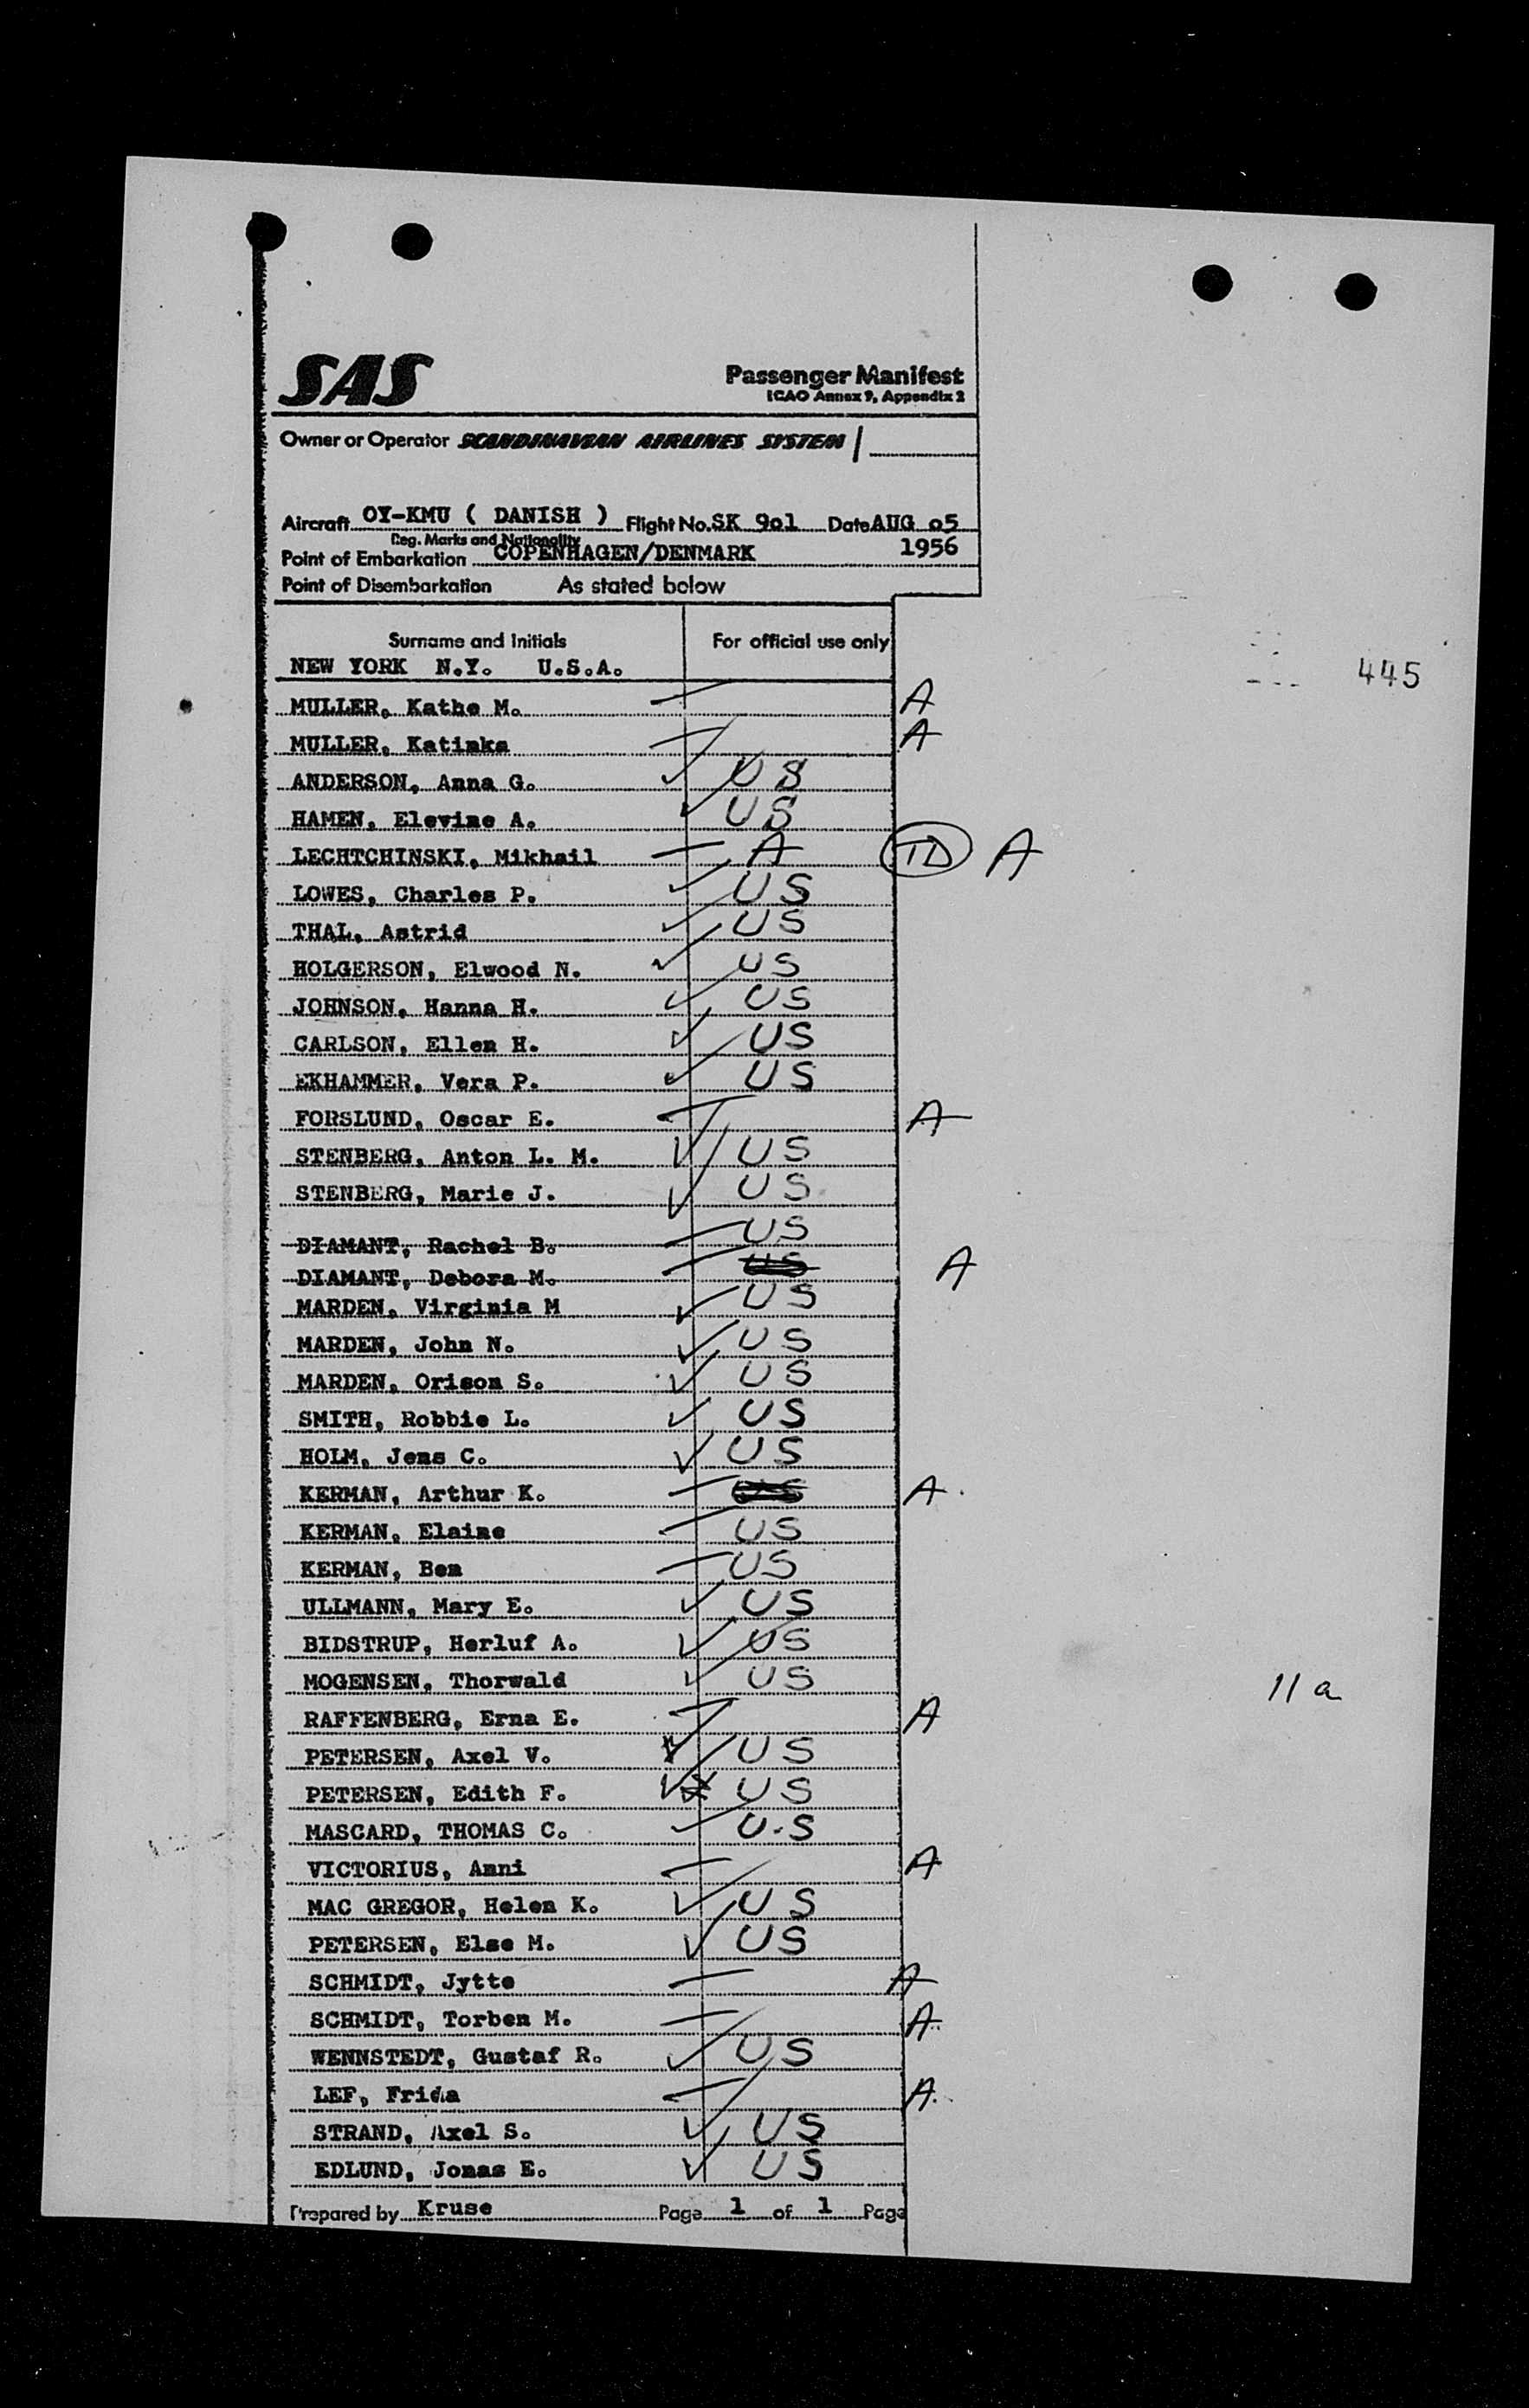 SAS
Passenger Manifest
ICAO Annex 9, Appendix 2
Owner or Operator SCANDINAVIAN AIRLINES SYSTEM /
Aircraft OY-KMU ( DANISH ) Flight No. SK 901 Date AUG 05
Reg. Marks and Nationality 1956
Point of Embarkation COPENHAGEN/DENMARK
Point of Disembarkation As stated below
Surname and Initials For official use only
NEW YORK N.Y. U.S.A. 445
MULLER, Kathe M. A
MULLER, Katinka A
ANDERSON, Anna G. US
HAMEN, Elevine A. US
LECHTCHINSKI, Mikhail A TD A
LOWES, Charles P. US
THAL, Astrid US
HOLGERSON, Elwood N. US
JOHNSON, Hanna H. US
CARLSON, Ellen H. US
EKHAMMER, Vera P. US
FORSLUND, Oscar E. A
STENBERG, Anton L. M. US
STENBERG, Marie J. US
DIAMANT, Rachel B. US
DIAMANT, Debora M. US A
MARDEN, Virginia M US
MARDEN, John N. US
MARDEN, Orison S. US
SMITH, Robbie L. US
HOLM, Jens C. US
KERMAN, Arthur K. US A.
KERMAN, Elaine US
KERMAN, Ben US
ULLMANN, Mary E. US
BIDSTRUP, Herluf A. US
MOGENSEN, Thorwald US 11 a
RAFFENBERG, Erna E. A
PETERSEN, Axel V. US
PETERSEN, Edith F. US
MASCARD, THOMAS C. U.S
VICTORIUS, Anni A
MAC GREGOR, Helen K. US
PETERSEN, Else M. US
SCHMIDT, Jytte A
SCHMIDT, Torben M. A.
WENNSTEDT, Gustaf R. US
LEF, Frida A.
STRAND, Axel S. US
EDLUND, Jonas E. US
Prepared by Kruse Page 1 of 1 Page